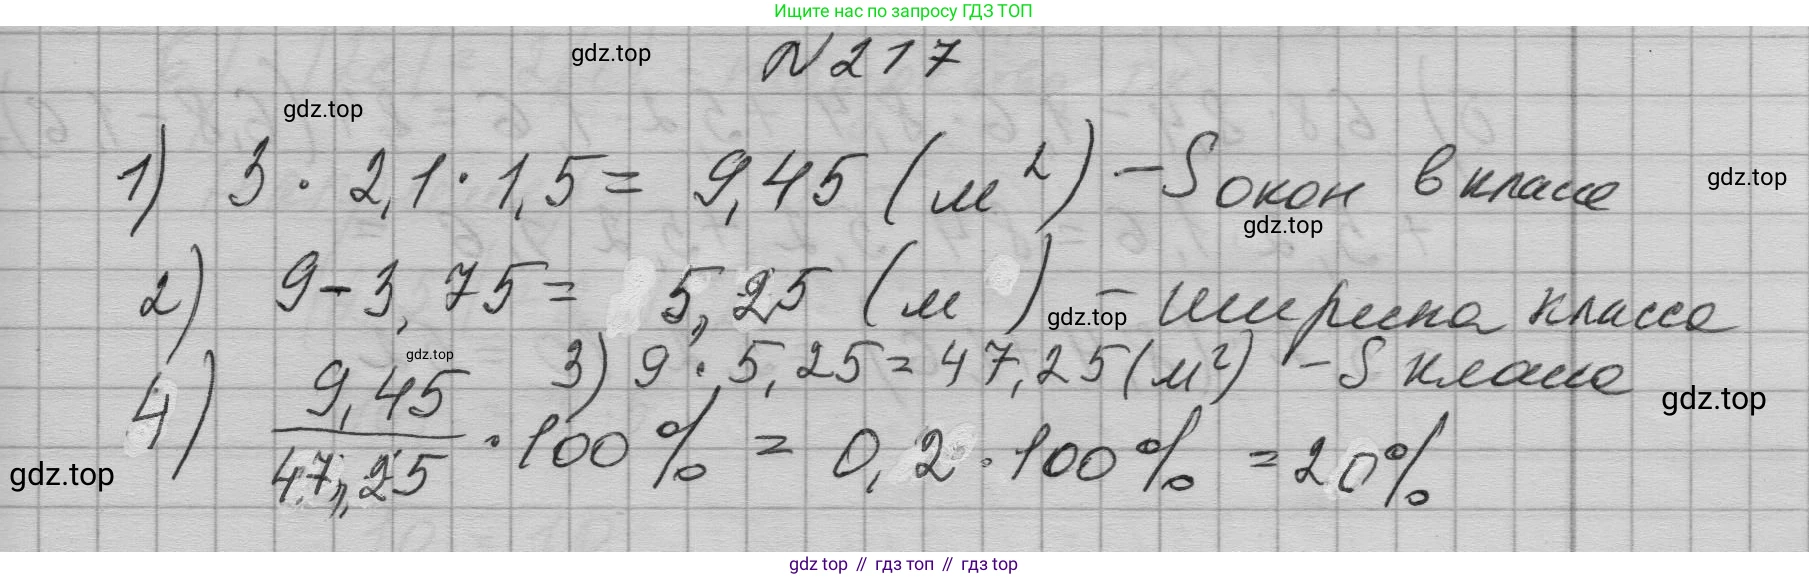 Ищите нас по запросу ГДЗ ТОП
gdz.top N217
gdz.top
1) 3 · 2,1 · 1,5 = 9,45 (м²) – S окон в классе gdz.top
gdz.top
2) 9 – 3,75 = 5,25 (м) – ширина класса
gdz.top
gdz.top 3) 9 · 5,25 = 47,25 (м²) – S класса
gdz.top
4) 9,45/47,25 · 100% = 0,2 · 100% = 20%
gdz.top
gdz top // гдз топ // gdz top